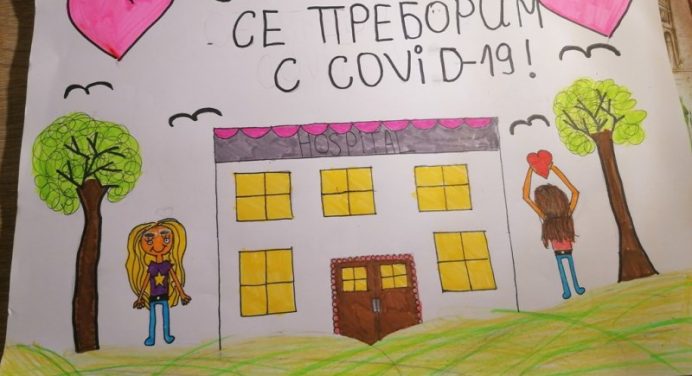 СЕ ПРЕБОРИМ
С COViD-19!
HOSPITAL